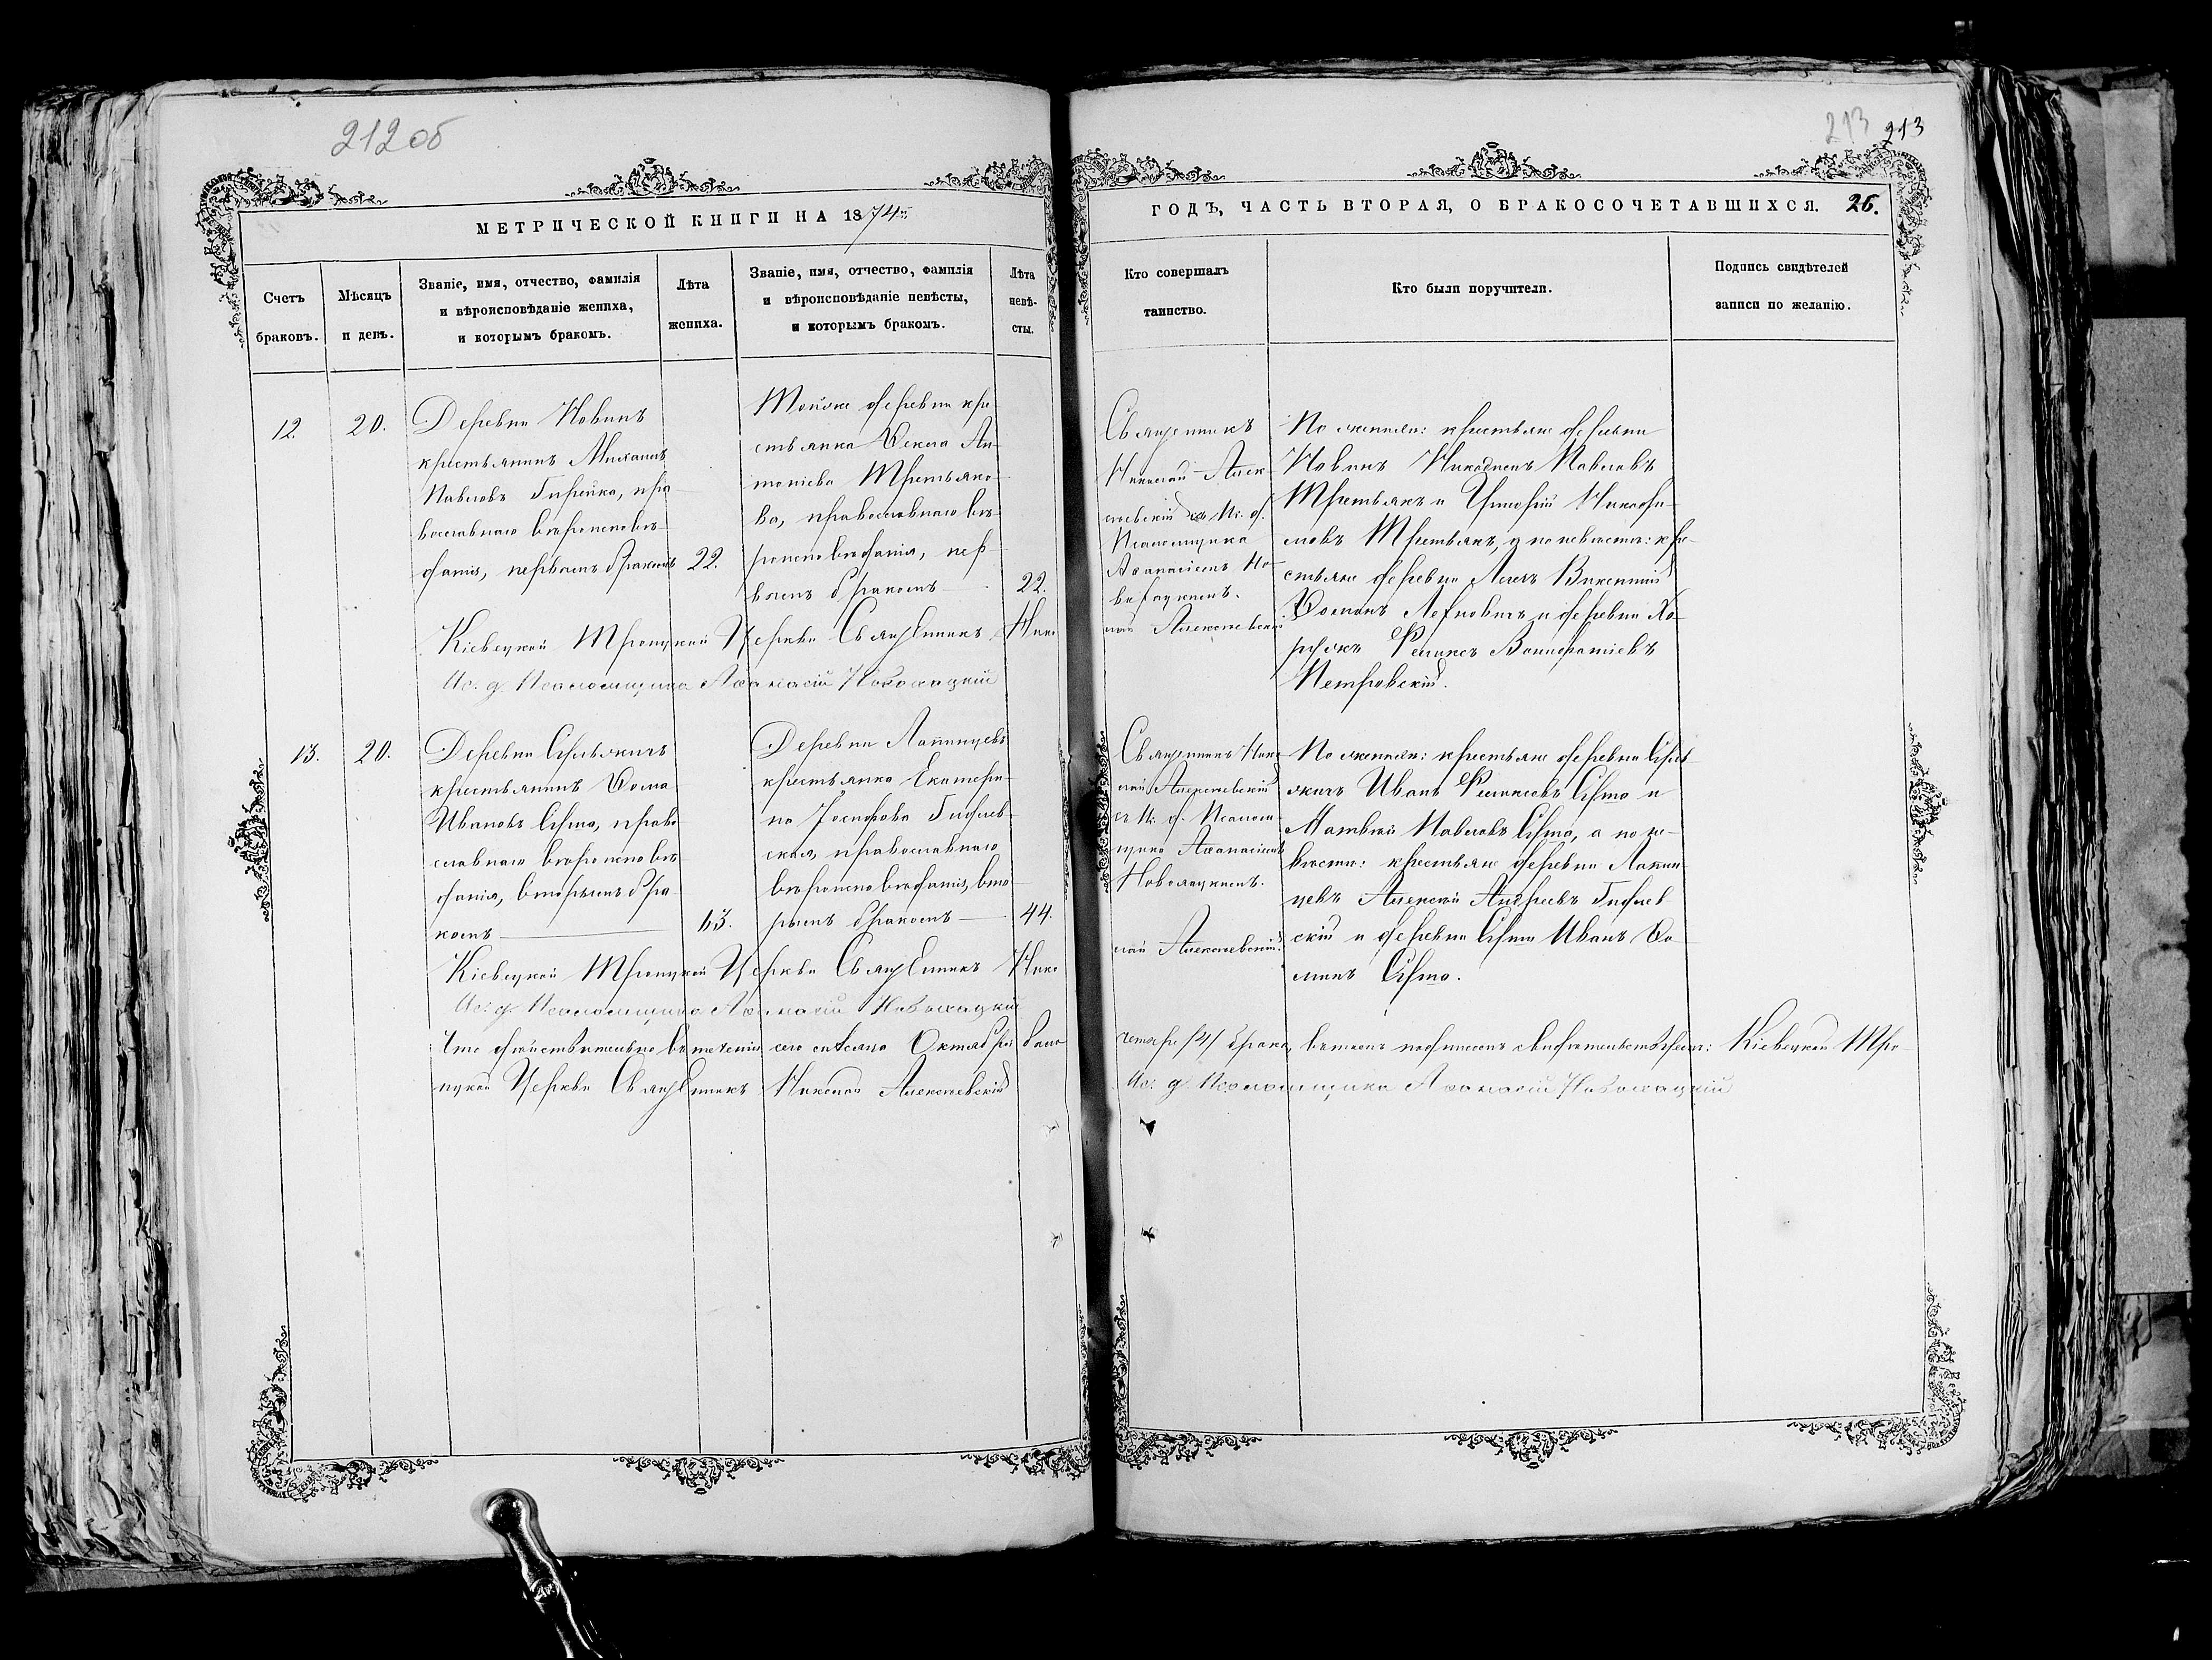 212 об
213
213
МЕТРИЧЕСКОЙ КНИГИ НА 1874й
ГОДЪ, ЧАСТЬ ВТОРАЯ, О БРАКОСОЧЕТАВШИХСЯ.
26.
Счетъ
браковъ.
Мѣсяцъ
и день.
Званіе, имя, отчество, фамилія
и вѣроисповѣданіе жениха,
и которымъ бракомъ.
Лѣта
жениха.
Званіе, имя, отчество, фамилія
и вѣроисповѣданіе невѣсты,
и которымъ бракомъ.
Лѣта
невѣ-
сты.
Кто совершалъ
таинство.
Кто были поручители.
Подпись свидѣтелей
записи по желанію.
12.
20.
Деревни Новинъ
крестьянинъ Михаилъ
Павловъ Гирейко, пра-
вославнаго вѣроисповѣ-
данія, первымъ бракомъ
22.
Тойже деревни кре
стьянка Ѳекла Ан-
тоніева Третьяко-
ва, православнаго вѣ-
роисповѣданія, пер-
вымъ бракомъ
22.
Священникъ
Николай Алек-
сѣевскій съ Ис. д.
Псаломщика
Аѳанасіемъ Но-
По женихѣ: крестьяне деревни
Новинъ Никодимъ Павловъ
Третьякъ и Григорій Никифо-
ровъ Третьякъ, а по невѣстѣ: кре-
стьяне деревни Викентій
Ѳоминъ и деревни Хо-
Феликсъ
Петровскій.
Кіевецкой Троицкой Церкви Священникъ Нико
лай Алексѣевскій
Ис. д. Псаломщика Аѳанасій
13.
20.
Деревни
крестьянинъ Ѳома
Ивановъ право
славнаго вѣроисповѣ-
данія, вторымъ бра-
комъ
63.
Деревни
крестьянка Екатери-
на
ская, православнаго
вѣроисповѣданія, вто-
рымъ бракомъ
44.
Священникъ Нико-
лай Алексѣевскій
съ Ис. д. Псалом-
щика Аѳанасіемъ
По женихѣ: крестьяне деревни
Иванъ Феликсовъ и
Матвѣй Павловъ а по не-
вѣстѣ: крестьяне деревни
Алексѣй Андреевъ
скій и деревни Иванъ Ѳо-
минъ
Кіевецкой Троицкой Церкви Священникъ Нико
лай Алексѣевскій.
Ис. д. Псаломщика Аѳанасій
Что дѣйствительно въ теченіи сего мѣсяца Октября было
четыре /4/ брака, въ томъ подписомъ свидѣтельствуемъ: Кіевецкой Тро-
ицкой Церкви Священникъ Николай Алексѣевскій
Ис. д. Псаломщика Аѳанасій